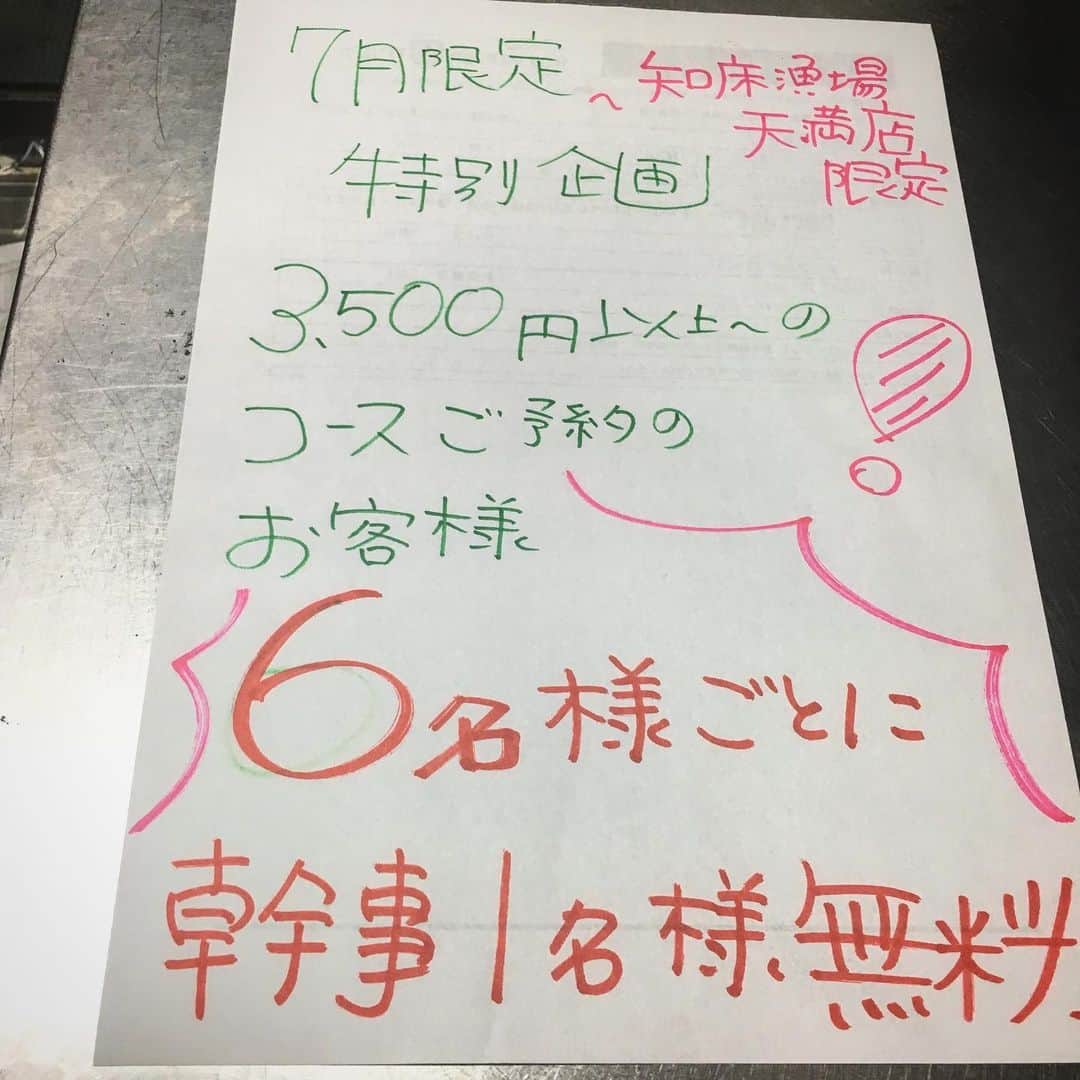 7月限定
〜知床漁場
天満店
限定
特別企画
3,500円以上〜の
コースご予約の
お客様
6名様ごとに
幹事1名様無料